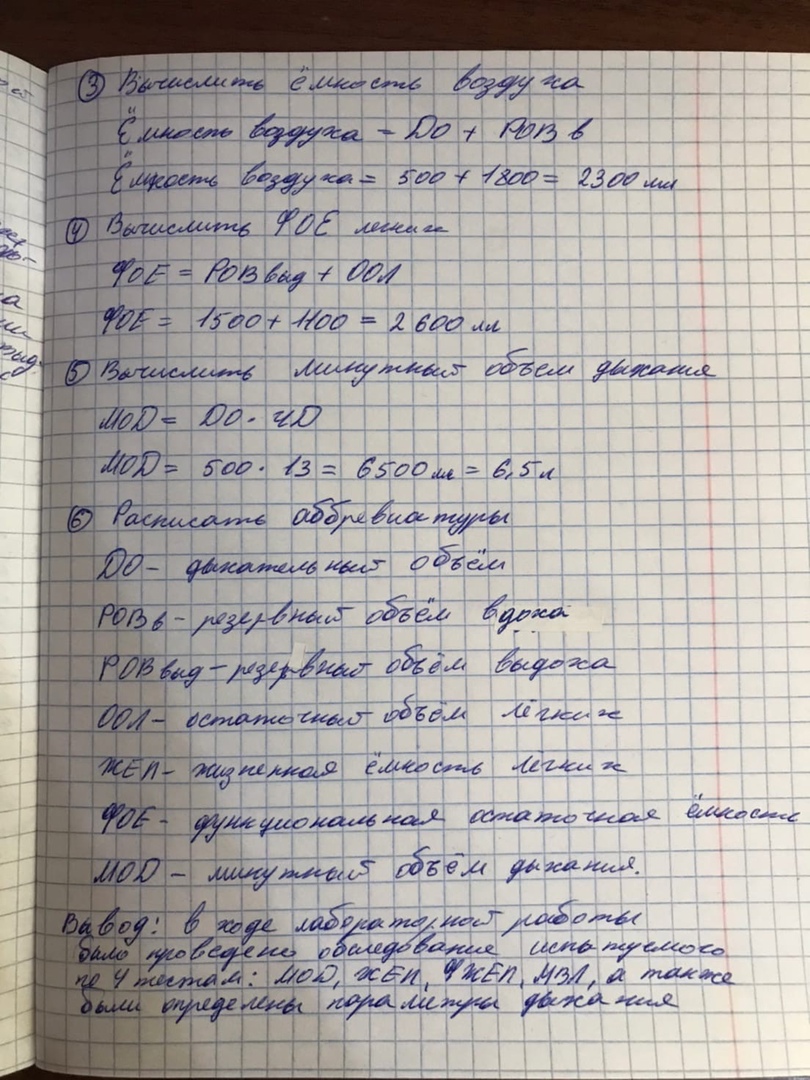 ③ Вычислить ёмкость воздуха
Ёмкость воздуха - ДО + РОВ в
Ёмкость воздуха = 500 + 1800 = 2300 мл
④ Вычислить ФОЕ легких
ФОЕ = РОВ выд + ООЛ
ФОЕ = 1500 + 1100 = 2600 мл
⑤ Вычислить минутный объем дыхания
МОД = ДО · ЧД
МОД = 500 · 13 = 6500 мл = 6,5 л
⑥ Расписать аббревиатуры
ДО - дыхательный объём
РОВ в - резервный объём вдоха
РОВ выд - резервный объём выдоха
ООЛ - остаточный объём лёгких
ЖЕЛ - жизненная ёмкость легких
ФОЕ - функциональная остаточная ёмкость
МОД - минутный объём дыхания.
Вывод: в ходе лабораторной работы
было проведено обследование испытуемого
по 4 тестам: МОД, ЖЕЛ, ФЖЕЛ, МВЛ, а также
были определены параметры дыхания